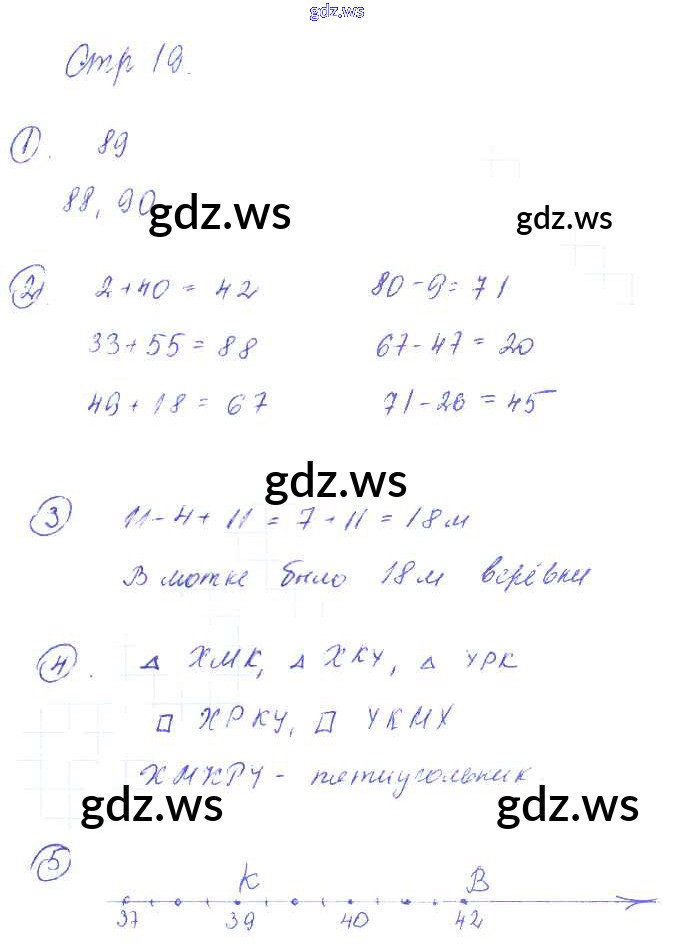 gdz.ws
Стр 19.
1. 89
88, 90
gdz.ws
gdz.ws
2. 2+40 = 42 80-9=71
33+55=88 67-47=20
49+18=67 71-26=45
gdz.ws
3 11-4+11=7+11=18м
В мотке было 18м верёвки
4. △ ХМК, △ ХКУ, △ УРК
▱ ХРКУ, ▱ УКМХ
ХМКРУ - пятиугольник.
gdz.ws
gdz.ws
5
К В
37 39 40 42